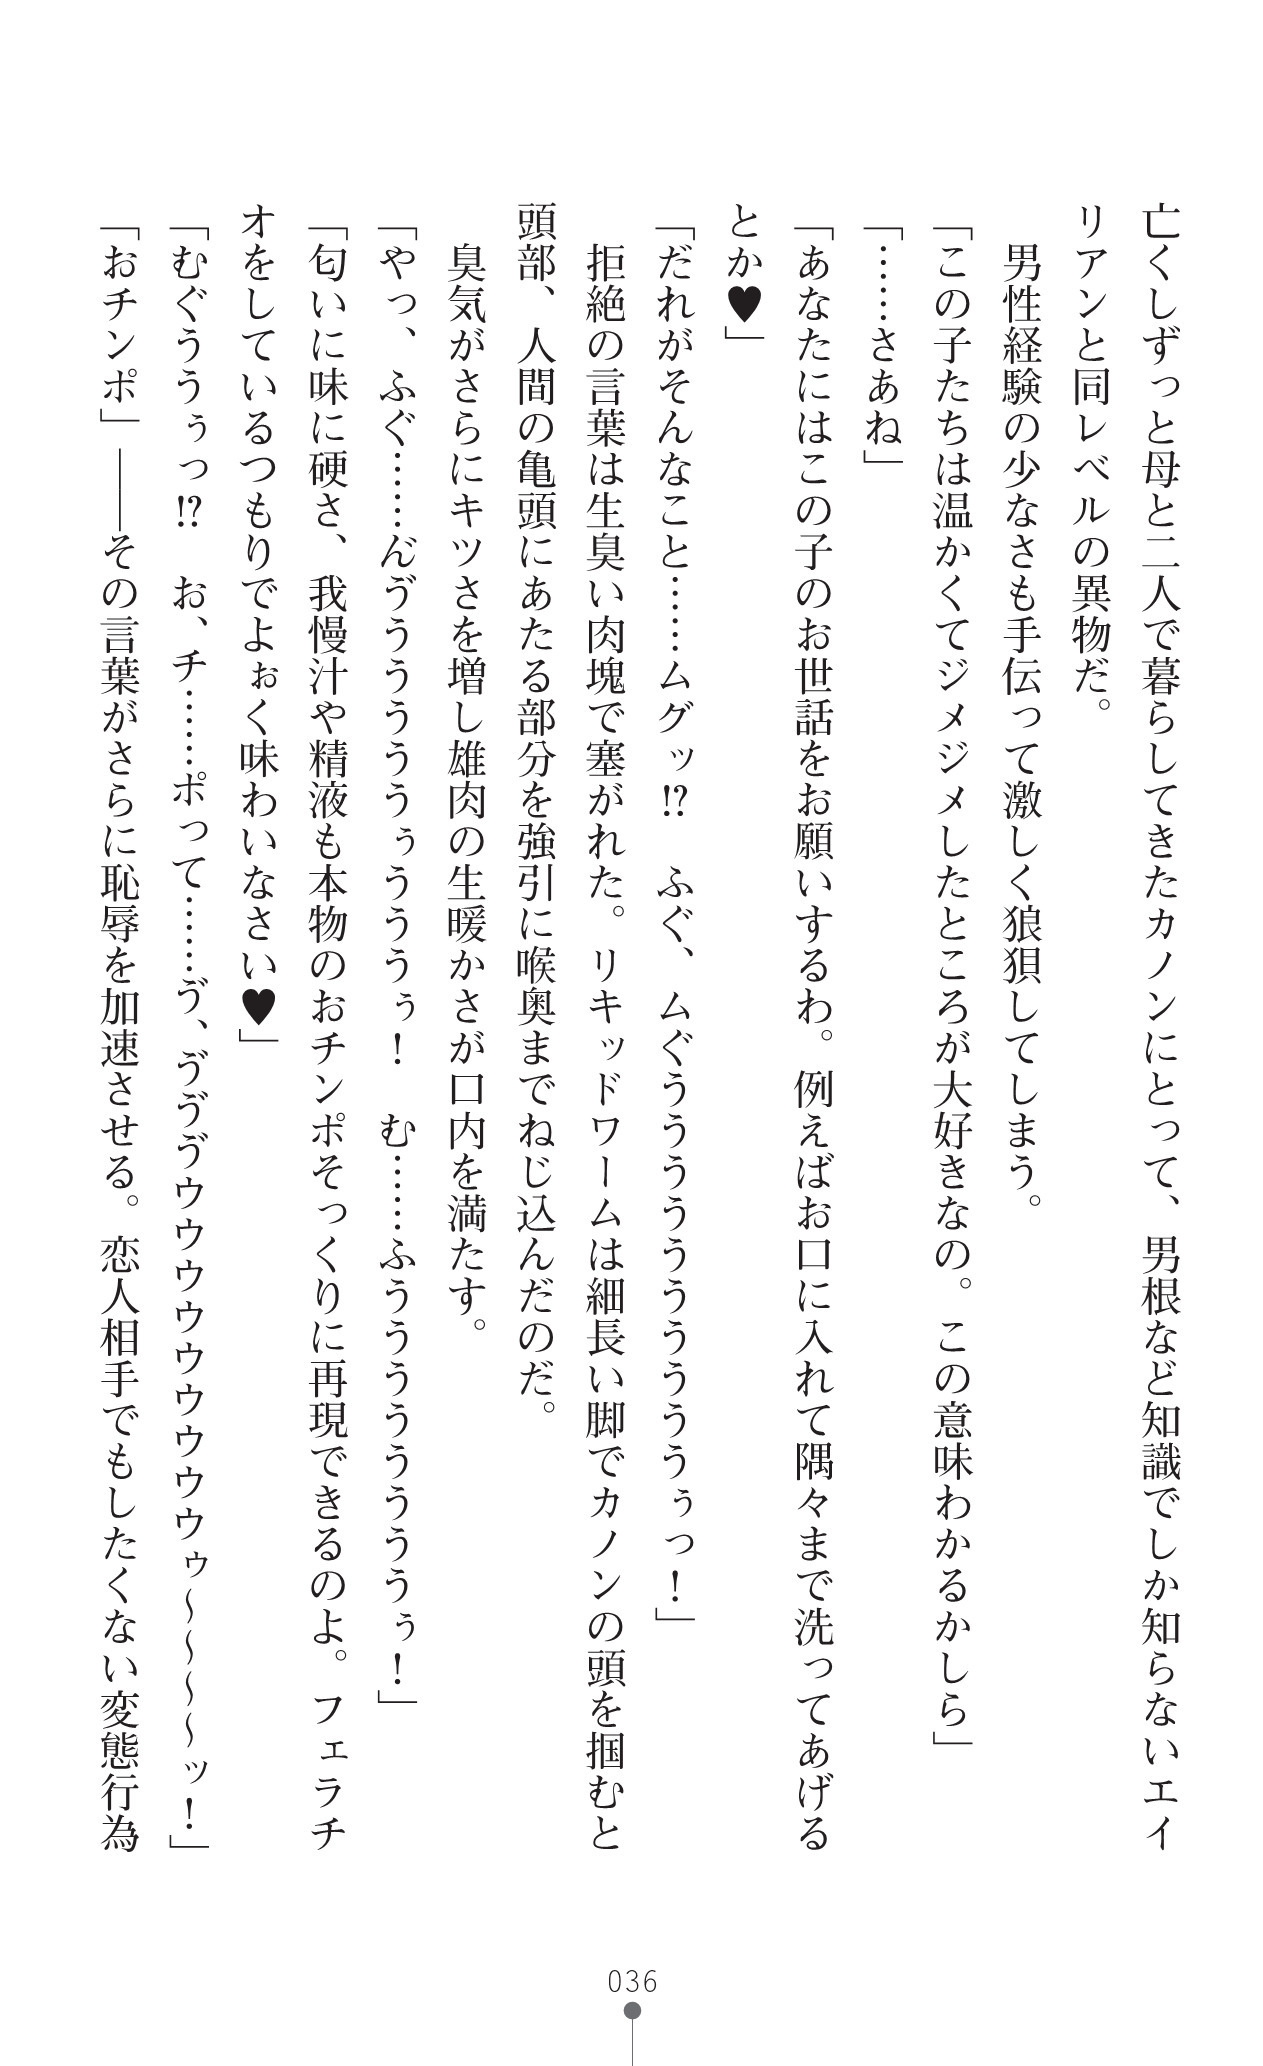 亡くしずっと母と二人で暮らしてきたカノンにとって、男根など知識でしか知らないエイ
リアンと同レベルの異物だ。
　男性経験の少なさも手伝って激しく狼狽してしまう。
「この子たちは温かくてジメジメしたところが大好きなの。この意味わかるかしら」
「……さあね」
「あなたにはこの子のお世話をお願いするわ。例えばお口に入れて隅々まで洗ってあげる
とか♥」
「だれがそんなこと……ムグッ!?　ふぐ、ムぐうううううううううぅっ！」
　拒絶の言葉は生臭い肉塊で塞がれた。リキッドワームは細長い脚でカノンの頭を掴むと
頭部、人間の亀頭にあたる部分を強引に喉奥までねじ込んだのだ。
　臭気がさらにキツさを増し雄肉の生暖かさが口内を満たす。
「やっ、ふぐ……ん゛う゛うううううぅうううぅ！　む……ふううううううううぅ！」
「匂いに味に硬さ、我慢汁や精液も本物のおチンポそっくりに再現できるのよ。フェラチ
オをしているつもりでよぉく味わいなさい♥」
「むぐううぅっ!?　お、チ……ポって……う゛、う゛う゛う゛ウウウウウウウウウゥ～～～～ッ！」
「おチンポ」――その言葉がさらに恥辱を加速させる。恋人相手でもしたくない変態行為
036